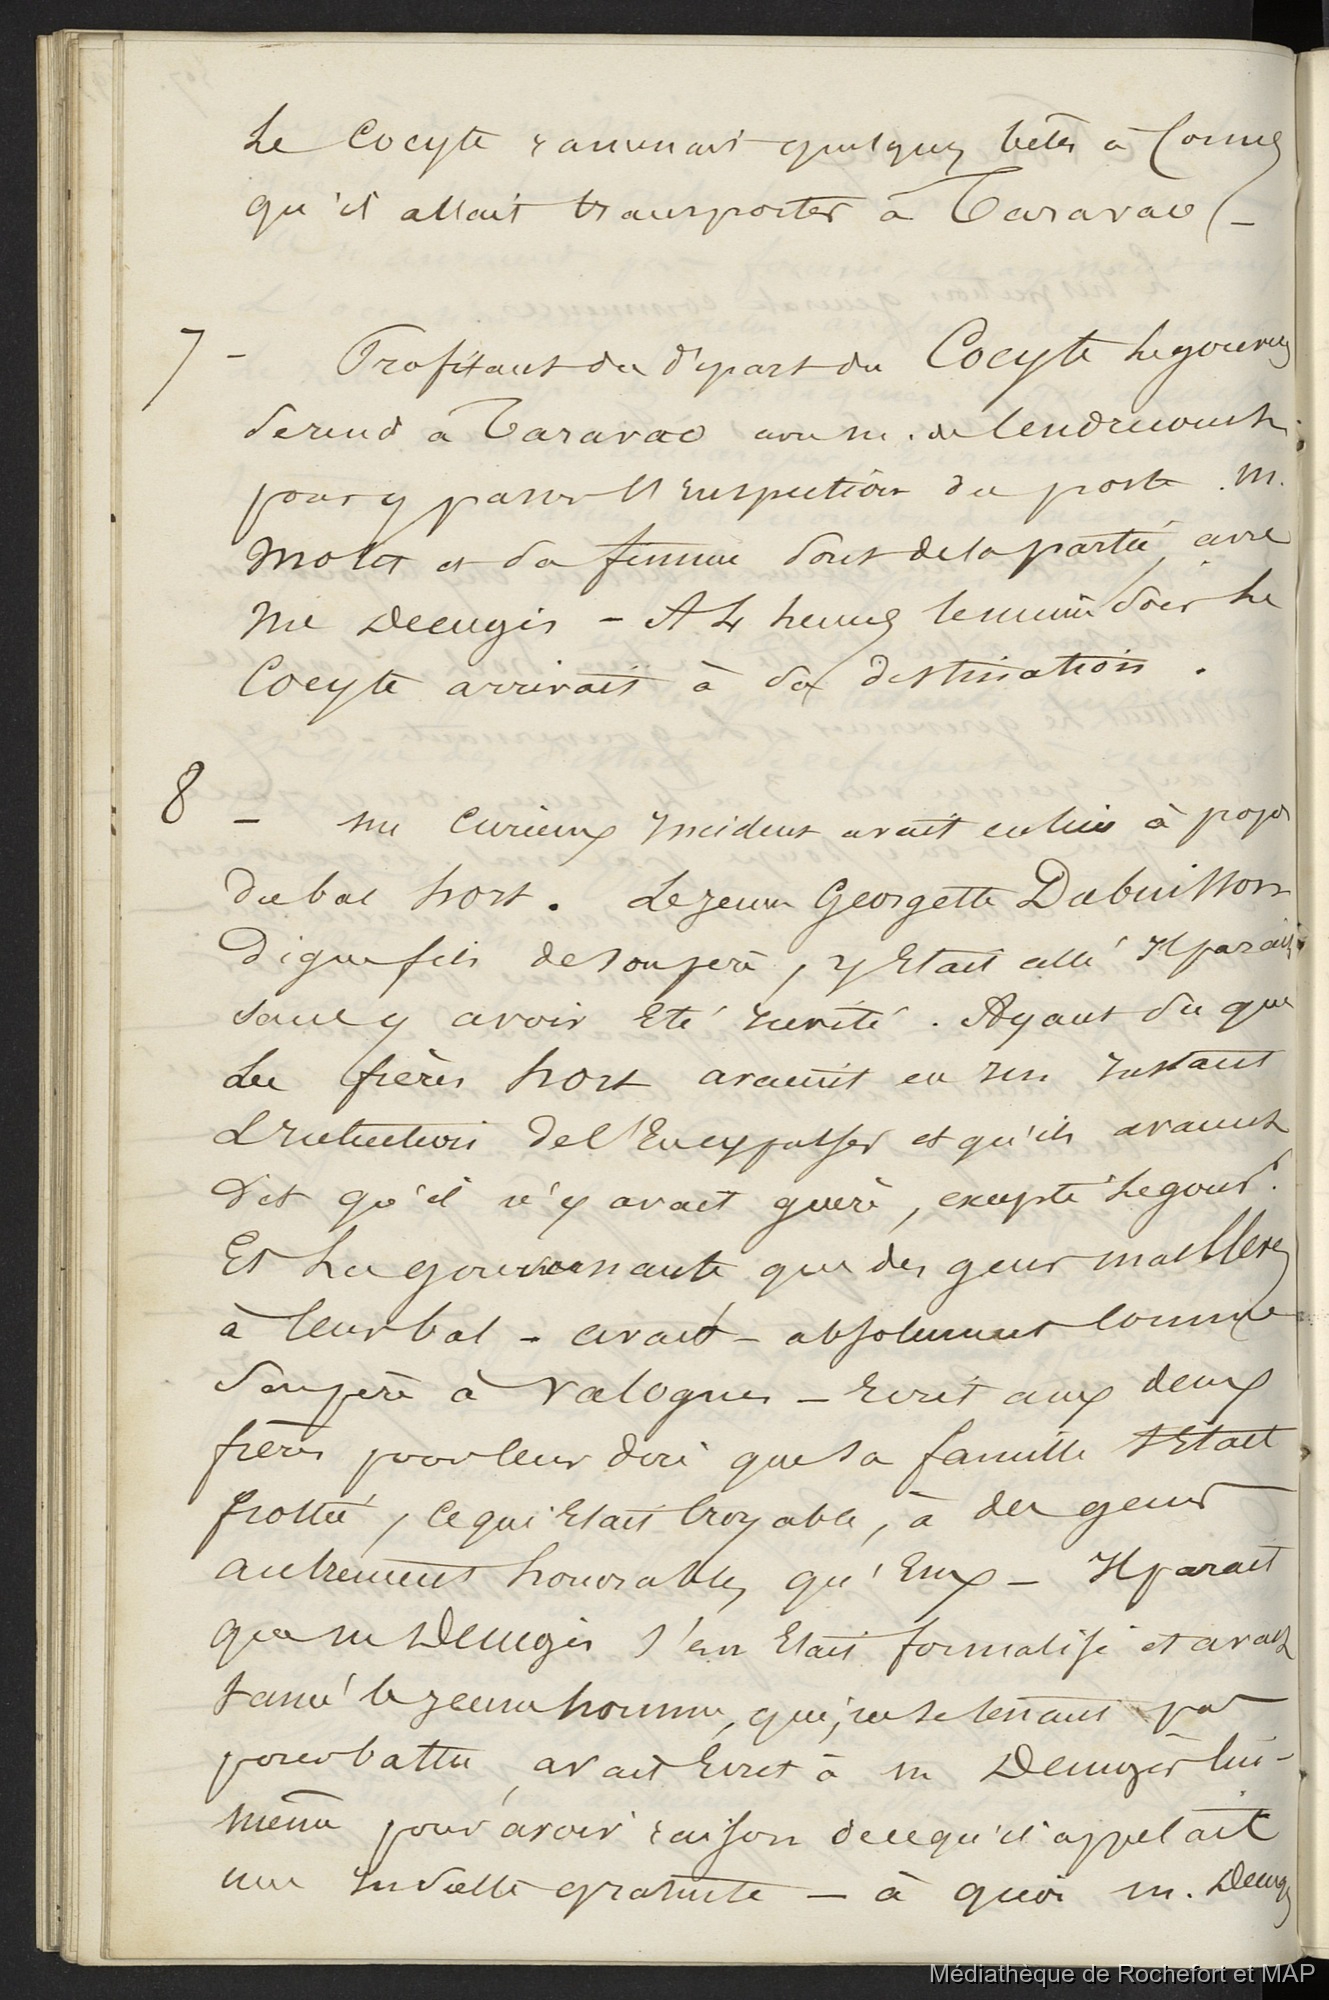 Le Cocyte ramenait quelques bêtes à Cornes
qu'il allait transporter à Taravao -
7 - Profitant du départ du Cocyte le gouverneur
se rend à Taravao avec M. de
pour y passer l'Inspection du poste. M.
et sa femme sont de la partie, avec
Me - A 4 heures le même soir le
Cocyte arrivait à sa destination.
8 - un curieux Incident avait eu lieu à propos
du bal hort. Le jeune Georgette Dubuisson
Digne fils de son père, y était allé Il parait
sans y avoir Eté Invité. Ayant su que
Les frères hort avaient eu un Instant
L'intention de l'En expulser et qu'ils avaient
dit qu'il n'y avait guère, excepté le gouvr.
Et La gouvernante que des gens mal Elevés
à leur bal - avait - absolument comme
Son père à Valognes - Ecrit aux deux
frères pour leur dire que sa famille s'Etait
frottée, ce qui Etait croyable, à des gens
autrement honorables qu'Eux - Il parait
que M s'en Etait formalisé et avait
tancé le jeune homme, qui, ne se tenant pas
pour battu, avait Ecrit à M lui-
même pour avoir raison de ce qu'il appelait
une Insulte gratuite - à quoi M.
Médiathèque de Rochefort et MAP